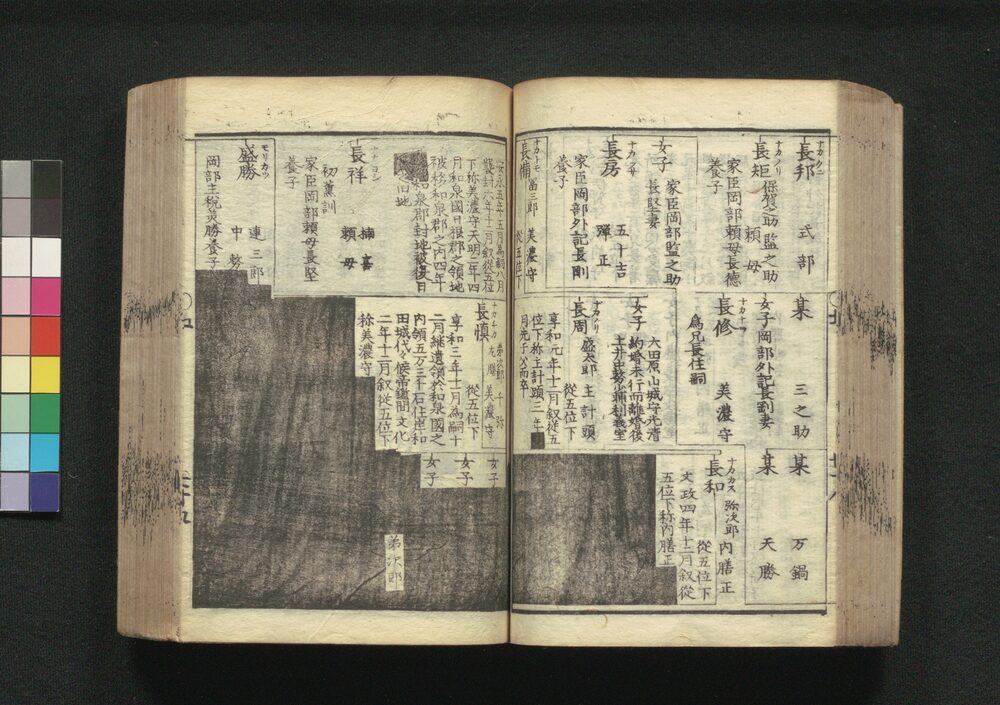 長邦 式部
ナカノリ
長矩 保賀之助 監之助
頼母
家臣岡部頼母長徳
養子
女子 家臣岡部監之助
長堅妻
ナカフサ
長房 五十吉
彈正
家臣岡部外記長剛
養子
ナカトモ
長備 冨三郎 美濃守
從五位下
某 三之助
女子 岡部外記長剛妻
長修 美濃守
為兄長住嗣
女子 大田原山城守光清
約婚未行而離婚後
土井兵部少輔利義室
長周 盛太郎 主計頭
從五位下
享和元年十二月叙從五
位下称主計頭三年
月先于父而卒
某 万鍋
某 天勝
ナカカス
長和 弥次郎 内膳正
從五位下
文政四年十二月叙從
五位下称内膳正
安永五年五月為嗣八月
襲封六年十二月叙從五位
下称美濃守天明二年四
月和泉國日根郡之領地
被移和泉郡之内四年
和泉郡封地被復日
旧地
長祥 楠喜
頼母
初薫訓
家臣岡部頼母長堅
養子
モリカツ
盛勝 連三郎
中務
岡部主税美勝養子
ナカチカ
長慎 弟次郎 千弥
左膳 美濃守
從五位下
享和三年十一月為嗣十
二月継遺領於和泉國之
内領五万三千石住岸和
田城代々候帝鑑間文化
二年十二月叙從五位下
称美濃守
女子
女子
女子
弟次郎